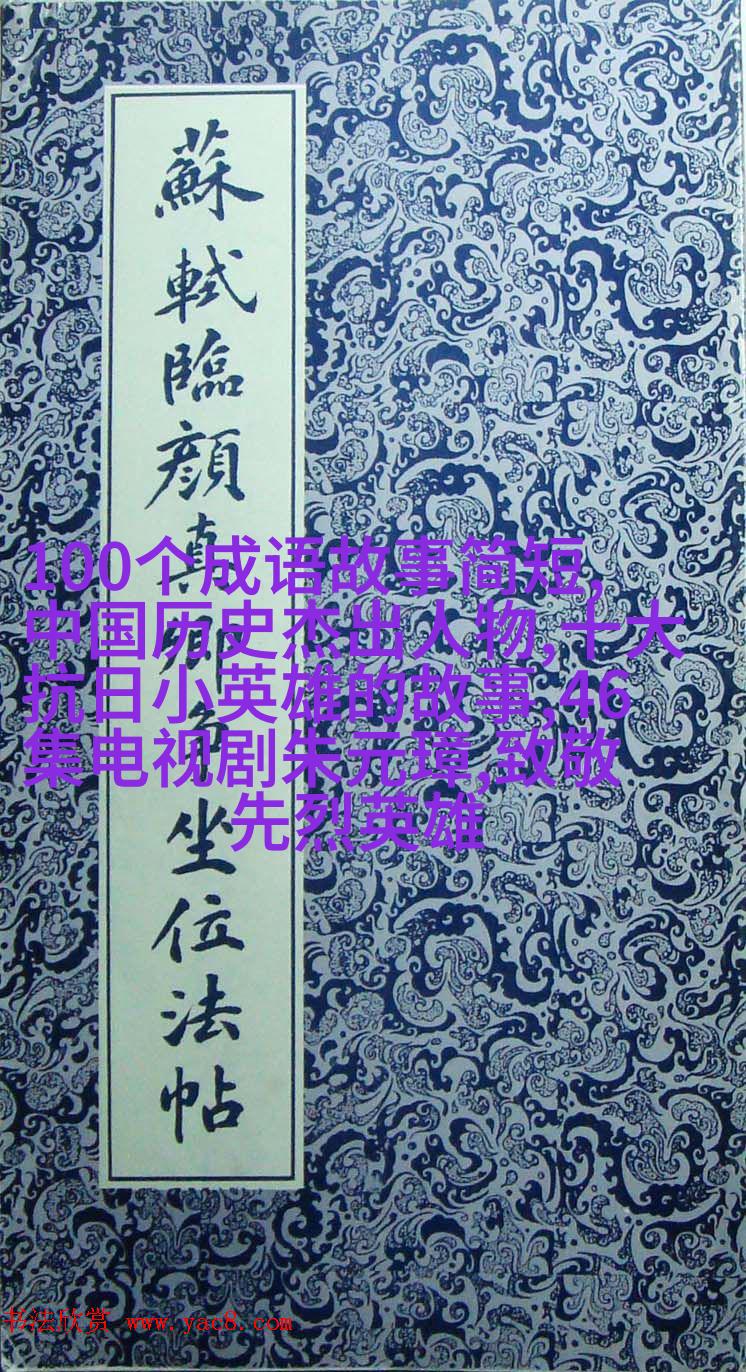 蘇軾臨顔真卿争坐位法帖
100个成语故事简短,
中国历史杰出人物,十大
抗日小英雄的故事,46
集电视剧朱元璋,致敬
先烈英雄
书法欣赏 www.yac8.com